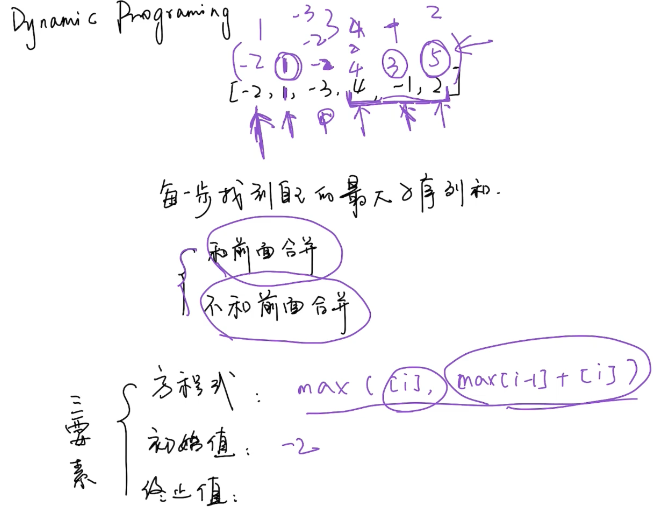 Dynamic Programing
1 -3 3 4 + 2
-2
(-2 1 -2 4 3 5
[-2, 1, -3, 4, -1, 2]
每一步找到自己的最大子序列和.
和前面合并
不和前面合并
三要素
方程式: max ( [i], max[i-1] + [i] )
初始值: -2
终止值: